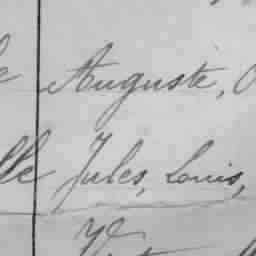 Auguste,
lle Jules, Louis,
ye